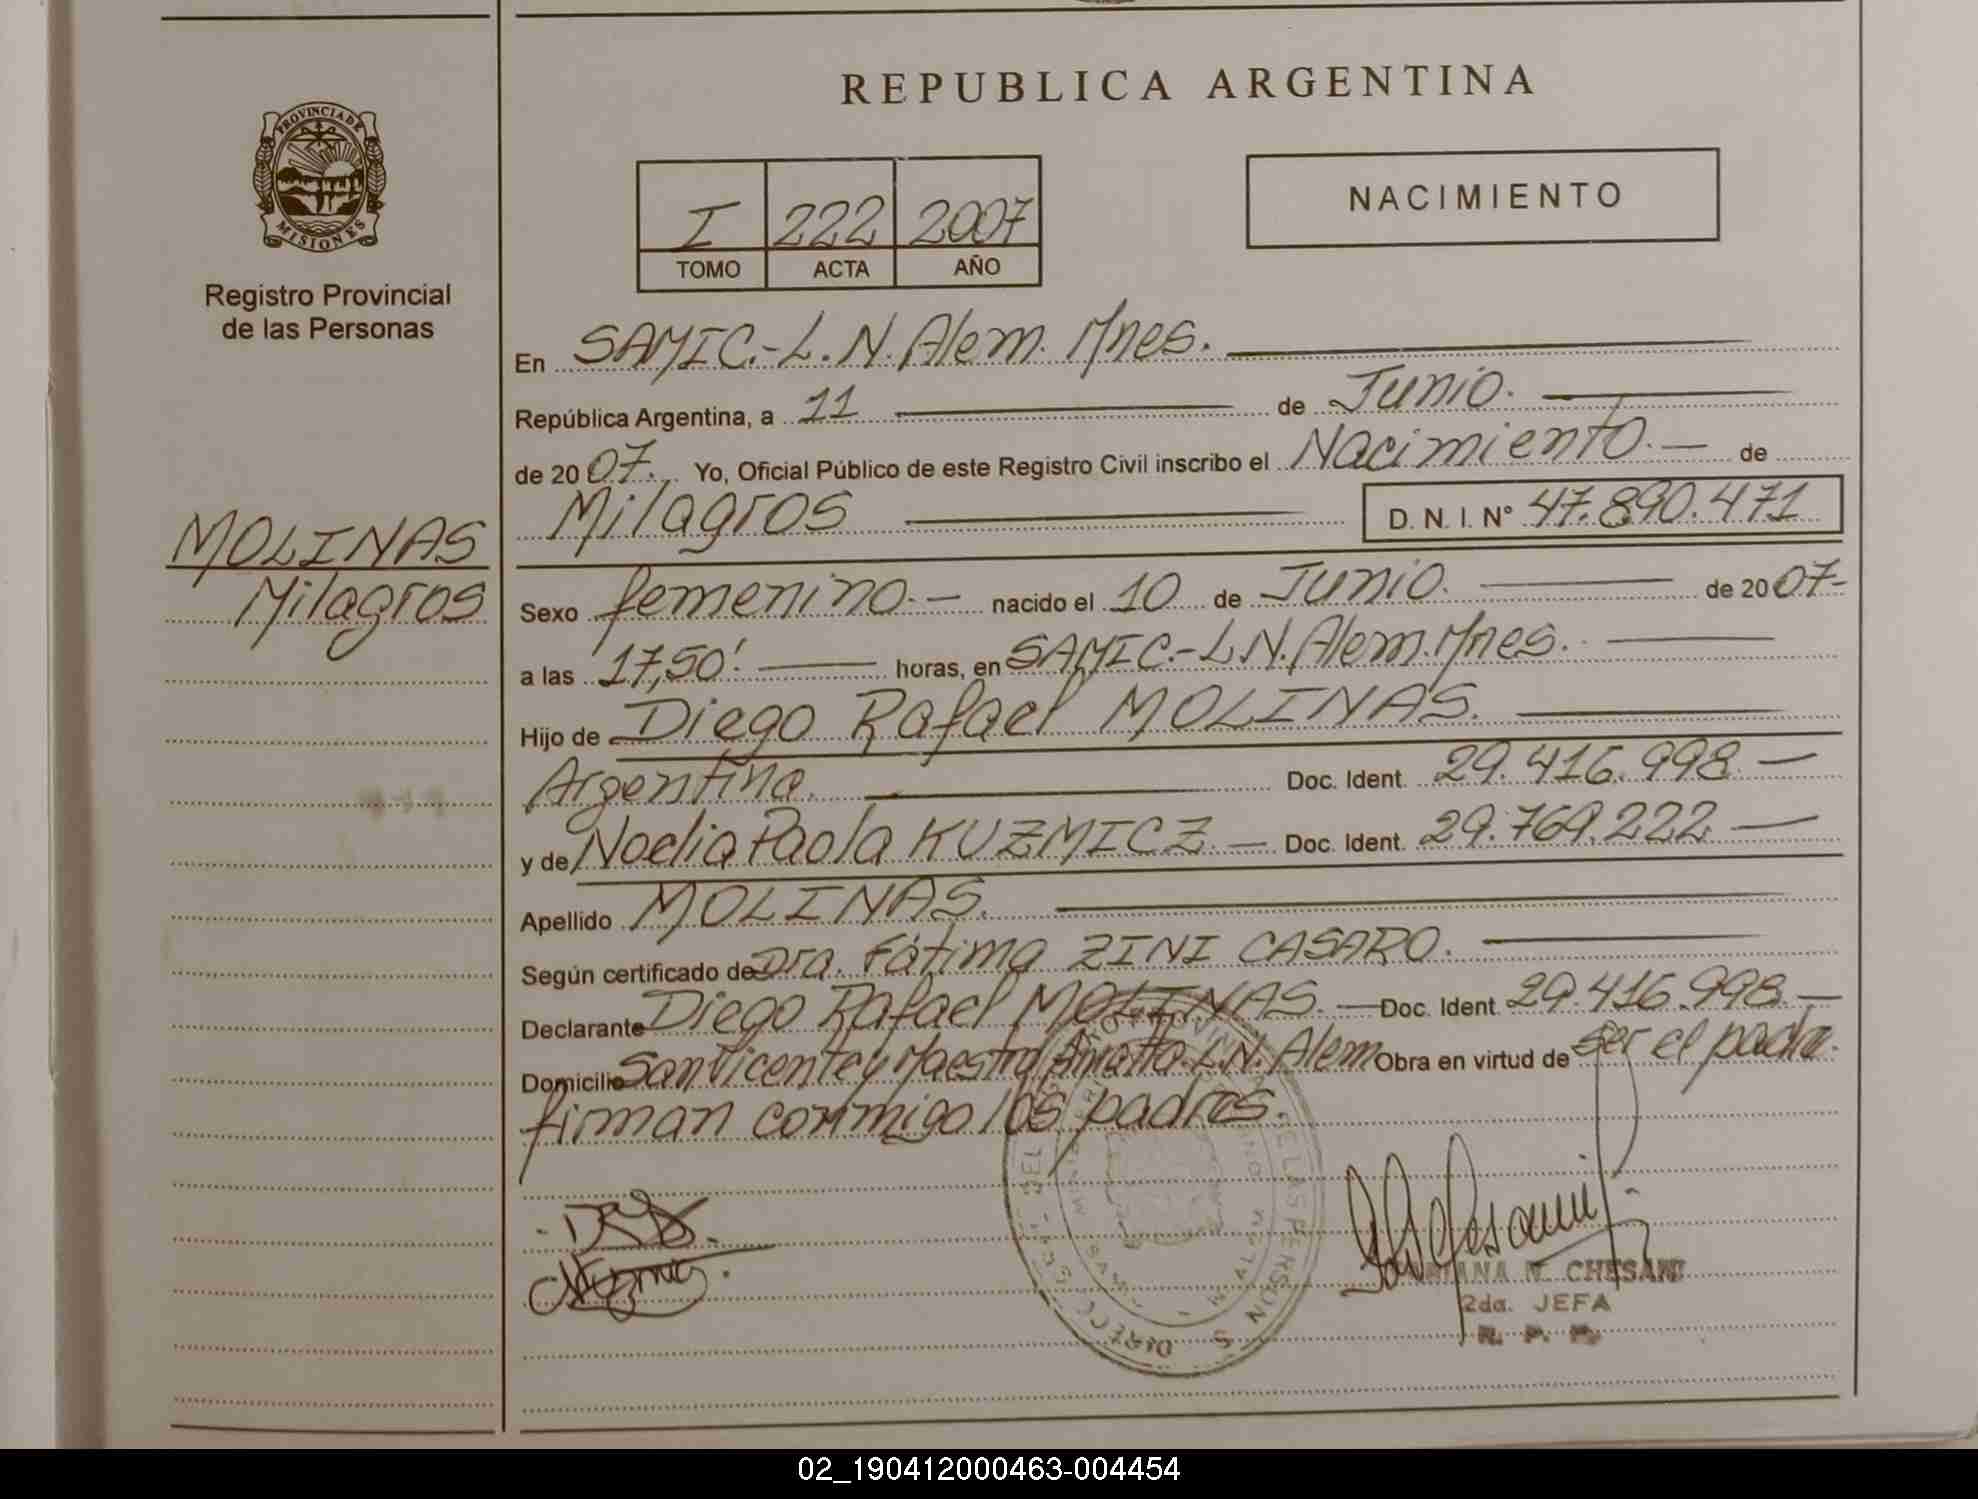 REPUBLICA ARGENTINA
PROVINCIA DE
MISIONES
Registro Provincial
de las Personas
NACIMIENTO
I 222 2007
TOMO ACTA AÑO
En SAMIC.-L.N.Alem.Mnes.
República Argentina, a 11 de Junio.
de 2007. Yo, Oficial Público de este Registro Civil inscribo el Nacimiento.- de
Milagros D. N. I. Nº 47.890.471
MOLINAS
Milagros
Sexo femenino.- nacido el 10 de Junio. de 2007-
a las 17,50'. horas, en SAMIC.-L.N.Alem.Mnes.
Hijo de Diego Rafael MOLINAS.
Argentina. Doc. Ident. 29.416.998.-
y de Noelia Paola KUZMICZ.- Doc. Ident. 29.769.222-
Apellido MOLINAS.
Según certificado de Dra. Fátima ZINI CASARO.
Declarante Diego Rafael MOLINAS.- Doc. Ident. 29.416.998.-
Domicilio San Vicente y Maestra L.N. Alem Obra en virtud de ser el padre.
firman conmigo los padres.
CHESANI
2da. JEFA
R. P. P.
02_190412000463-004454